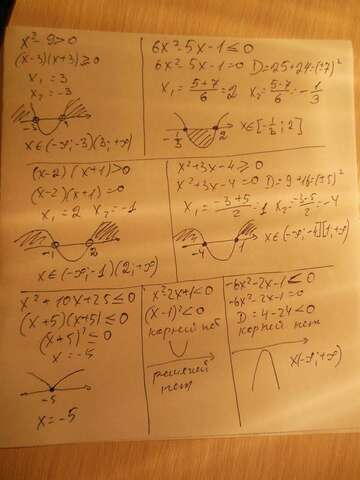 x²-9>0
(x-3)(x+3)≥0
x₁=3
x₂=-3
-3 3
x∈(-∞;-3)(3;+∞)
6x²-5x-1≤0
6x²-5x-1=0 D=25+24=(±7)²
x₁=5+7/6=2 x₂=5-7/6=-1/3
-1/3 2 x∈[-1/3;2]
(x-2)(x+1)>0
(x-2)(x+1)=0
x₁=2 x₂=-1
-1 2
x∈(-∞;-1)(2;+∞)
x²+3x-4≥0
x²+3x-4=0 D=9+16=(±5)²
x₁=-3+5/2=1 x₂=-3-5/2=-4
-4 1 x∈(-∞;-4][1;+∞)
x²+10x+25≤0
(x+5)(x+5)≤0
(x+5)²≤0
x=-5
-5
x=-5
x²-2x+1<0
(x-1)²<0
корней нет
решений
нет
-6x²-2x-1<0
-6x²-2x-1=0
D=4-24<0
корней нет
x(-∞;+∞)